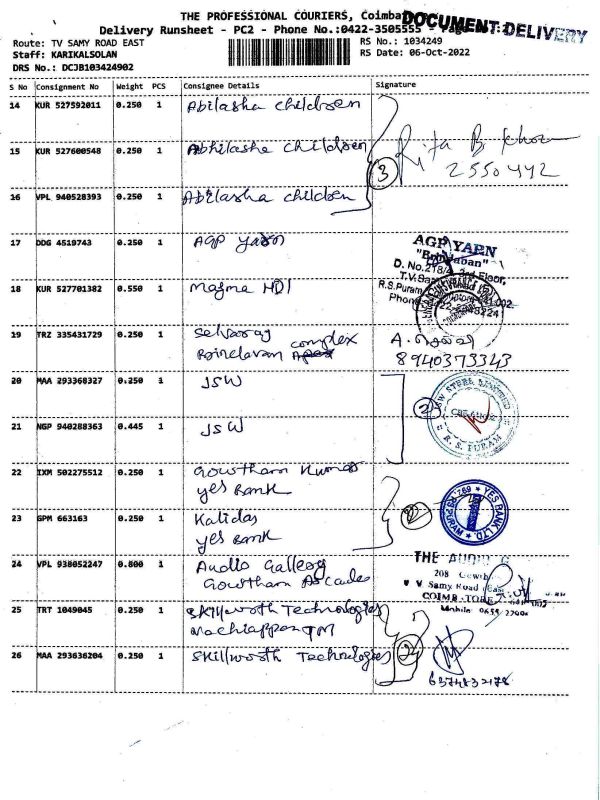 THE PROFESSIONAL COURIERS, Coimba
DOCUMENT DELIVERY
Delivery Runsheet - PC2 - Phone No.:0422-3505555
Route: TV SAMY ROAD EAST
RS No.: 1034249
Staff: KARIKALSOLAN
RS Date: 06-Oct-2022
DRS No.: DCJB103424902
S No Consignment No Weight PCS Consignee Details Signature
14 KUR 527592011 0.250 1 Abilasha children
15 KUR 527600548 0.250 1 Abhilasha children
Rita B Khona
2550442
3
16 VPL 940528393 0.250 1 Abilasha children
17 DDG 4519743 0.250 1 AGP yarn
AGP YARN
"Brindaban"
D. No.218/4, 3rd Floor,
T.V.Sa
R.S.Puram
Phone
18 KUR 527701382 0.550 1 Magma HDI
19 TRZ 335431729 0.250 1 Selvaraj
Brindavan complex
8940373343
20 MAA 293368327 0.250 1 JSW
2
JSW STEEL LIMITED
R. S. PURAM
21 NGP 940288363 0.445 1 JSW
22 IXM 502275512 0.250 1 Gowtham Kumar
yes Bank
2
YES BANK LTD.
R S PURAM
23 GPM 663163 0.250 1 Kalidas
yes Bank
24 VPL 938052247 0.800 1 Audio Gallery
Gowtham Arcade
THE AUDIO G
208 Gowth
V Samy Road (East
COIMB TORE
Mobile:
25 TRT 1049045 0.250 1 Skillworth Technologies
Nachiappan TM
2
26 MAA 293636204 0.250 1 Skillworth Technologies
6374832178